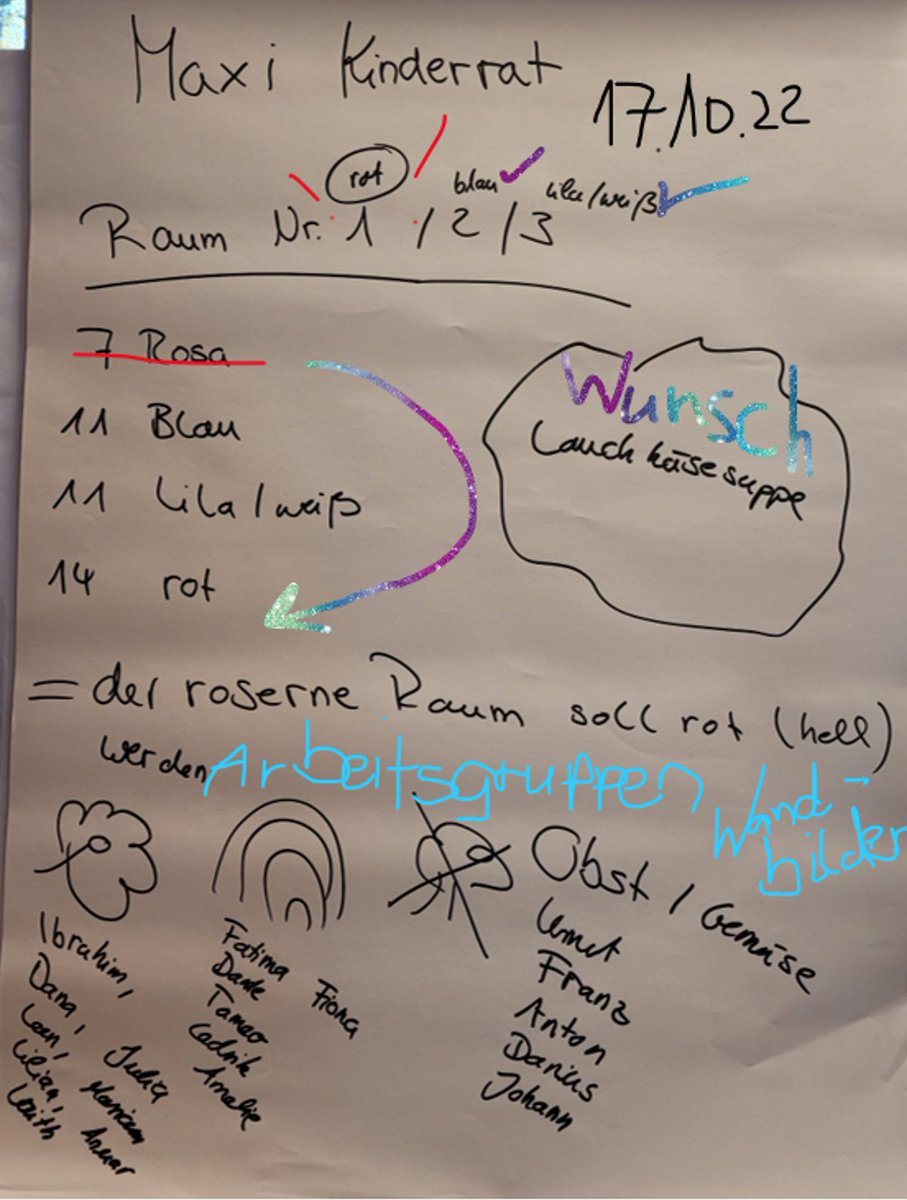 Maxi Kinderrat
17.10.22
rot blau lila/weiß
Raum Nr. 1 / 2 / 3
7 Rosa
11 Blau
11 Lila/weiß
14 rot
Wunsch
Lauchkäsesuppe
= der roserne Raum soll rot (hell)
werden
Arbeitsgruppen Wand-
bilder
Obst / Gemüse
Ibrahim,
Dana, Julia
Leen, Mariam
Lilian, Anuar
Laith
Fatima Fiona
Dante
Tamao
Cedrik
Amelie
Umut
Franz
Anton
Darius
Johann